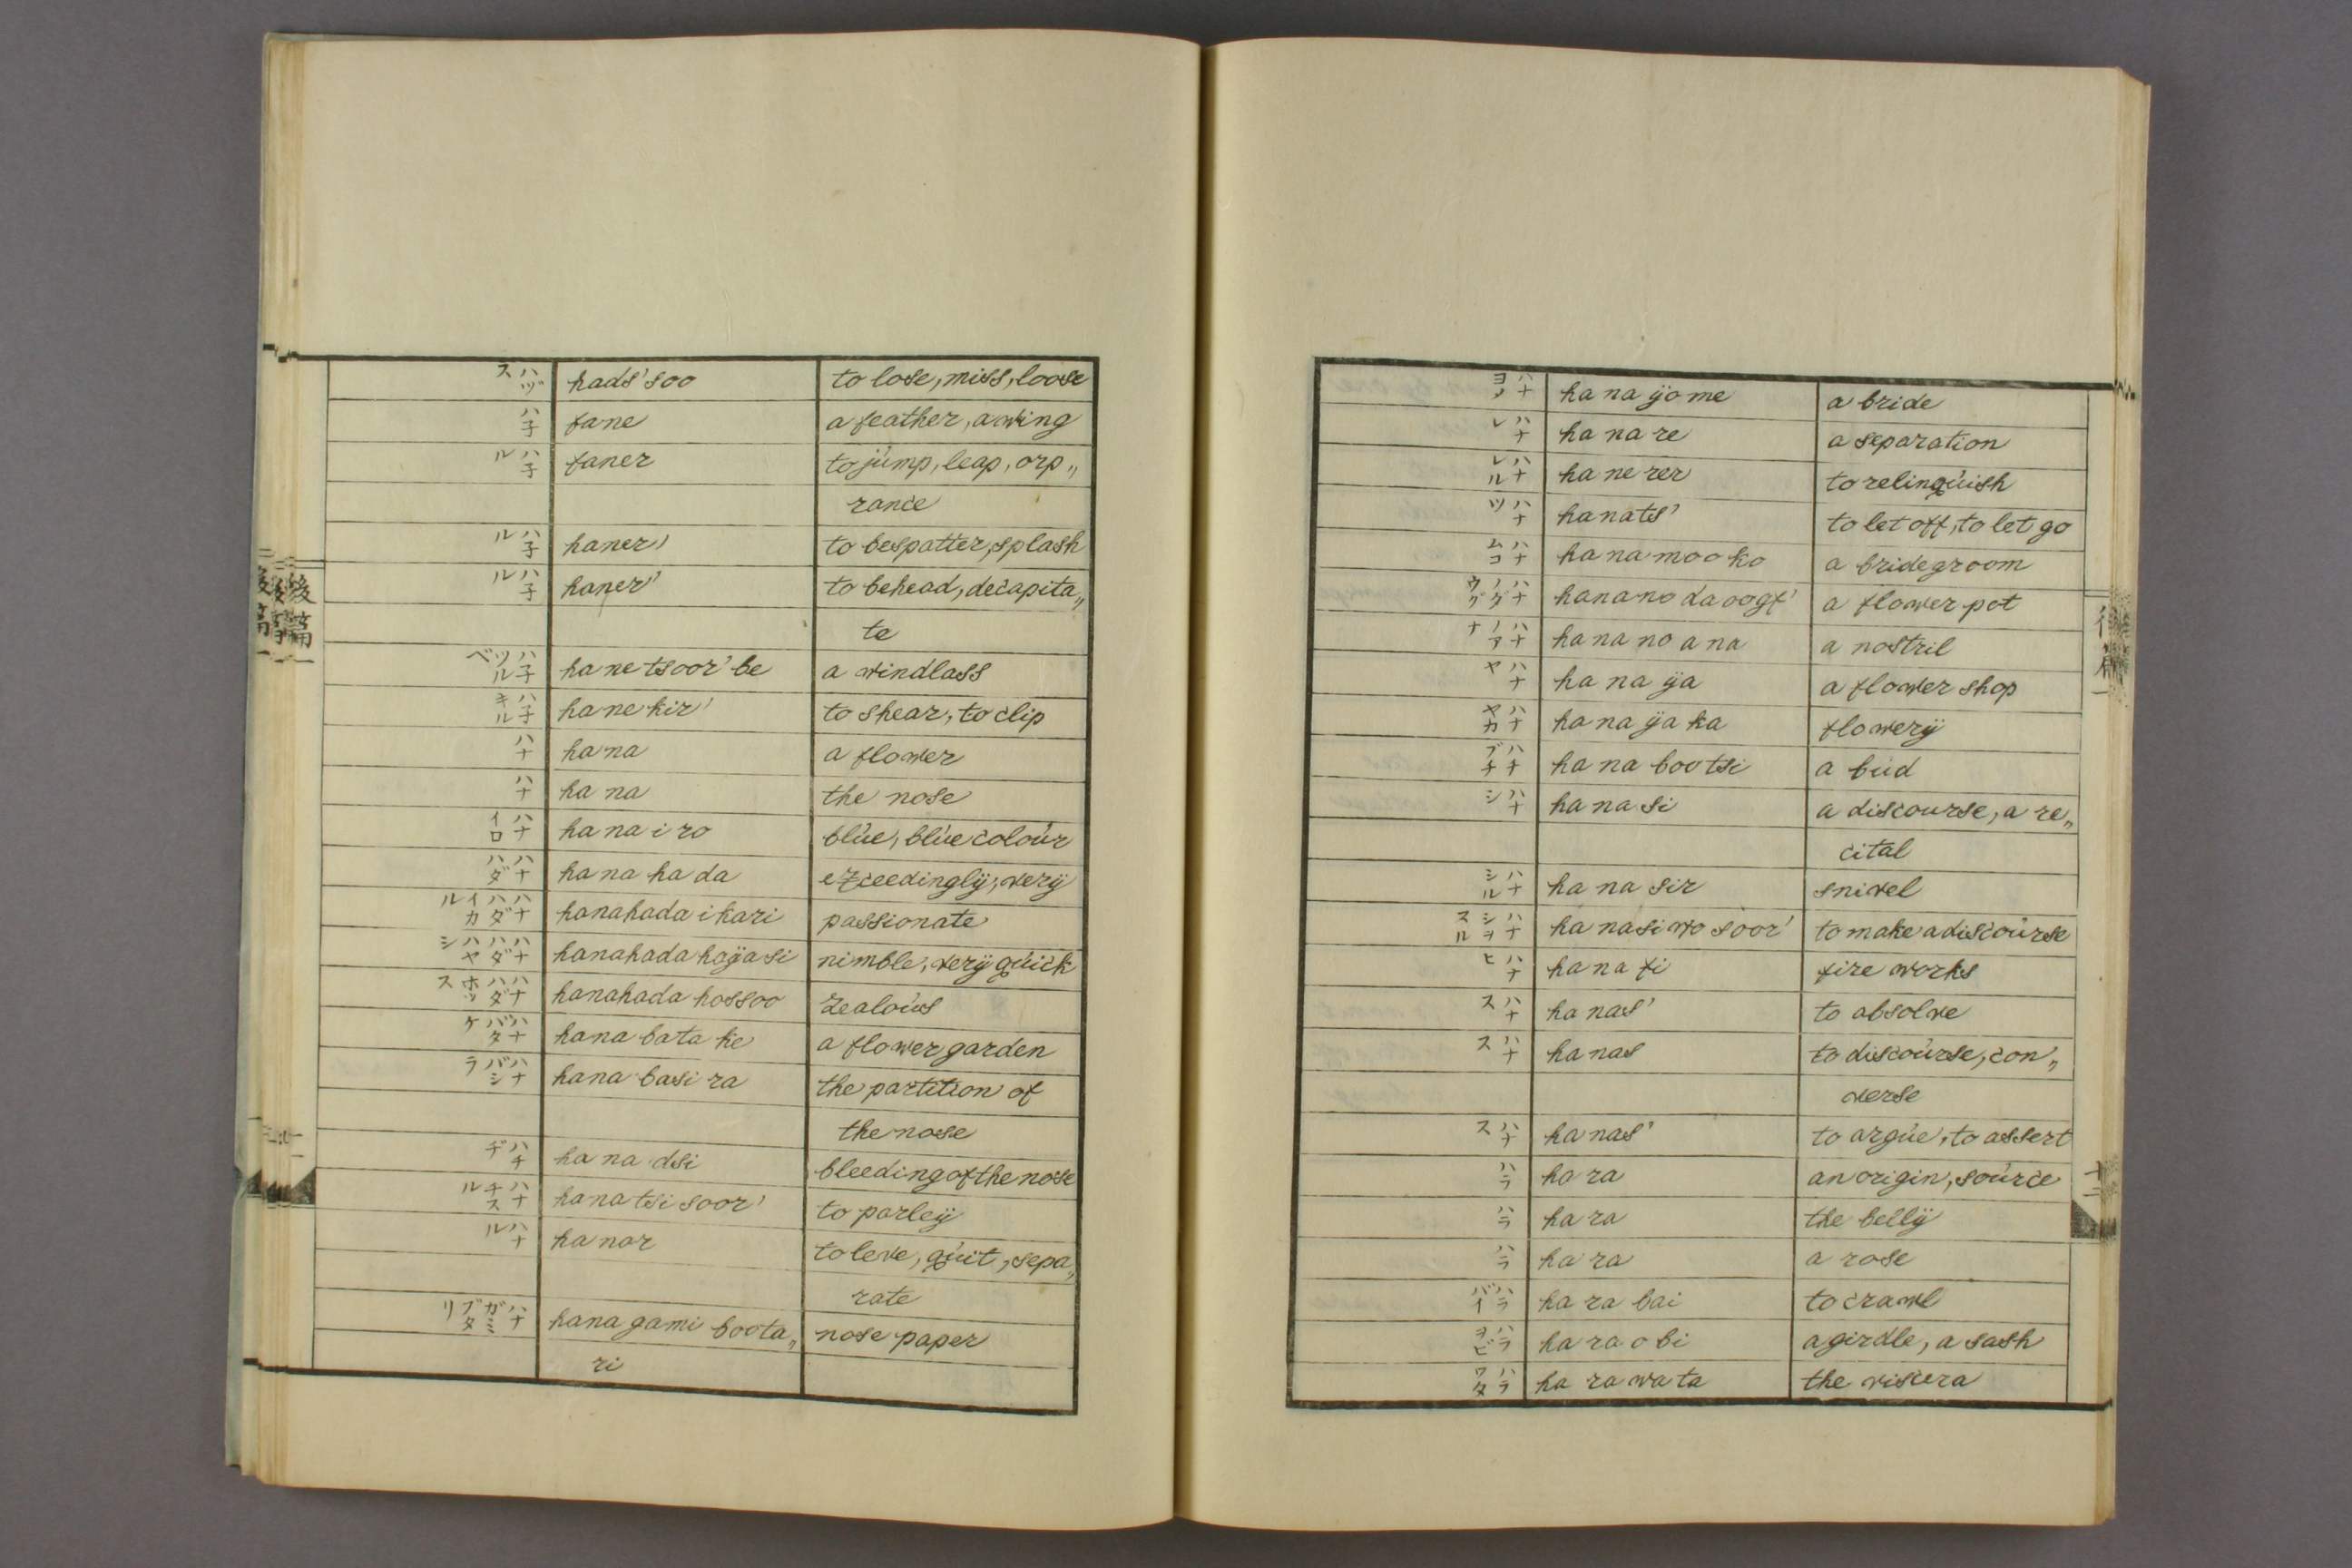 ハヅス hads' soo to lose, miss, loose
ハ子 fane a feather, a wing
ハ子ル faner to jump, leap, orp„
rance
ハ子ル haner' to bespatter, splash
ハ子ル haner' to behead, decapita„
te
ハ子ツルベ hane tsoor' be a windlass
ハ子キル hane kir' to shear, to clip
ハナ hana a flower
ハナ ha na the nose
ハナイロ ha na i ro blue, blue colour
ハナハダ ha na ha da exceedinglÿ, verÿ
ハナハダイカル hanahada ikari passionate
ハナハダハヤシ hanahada haÿasi nimble, verÿ quick
ハナハダホッス hanahada hossoo zealous
ハナバタケ hana bata ke a flower garden
ハナバシラ hana basi ra the partition of
the nose
ハチヂ ha na dsi bleeding of the nose
ハナチスル hana tsi soor' to parleÿ
ハナル ha nar to leve, quit, sepa„
rate
ハナガミブタリ hana gami boota„ nose paper
ri
後篇
ハナヨメ ha na ÿo me a bride
ハナレ ha na re a separation
ハナレル ha ne rer to relinquish
ハナツ ha nats' to let off, to let go
ハナムコ ha na moo ko a bridegroom
ハナノダウグ hana no da oogf' a flower pot
ハナノアナ ha na no a na a nostril
ハナヤ ha na ÿa a flower shop
ハナヤカ ha na ÿa ka flowerÿ
ハナブチ ha na boo tsi a bud
ハナシ ha na si a discourse, a re„
cital
ハナシル ha na sir snivel
ハナシヲスル ha nasi wo soor' to make a discourse
ハナヒ ha na fi fire works
ハナス ha nas' to absolve
ハナス ha nas to discourse, con„
verse
ハナス ha nas' to argue, to assert
ハラ ha ra an origin, source
ハラ ha ra the bellÿ
ハラ ha ra a rose
ハラバイ ha ra bai to crawl
ハラヲビ ha ra o bi a girdle, a sash
ハラワタ ha ra wa ta the viscera
十二